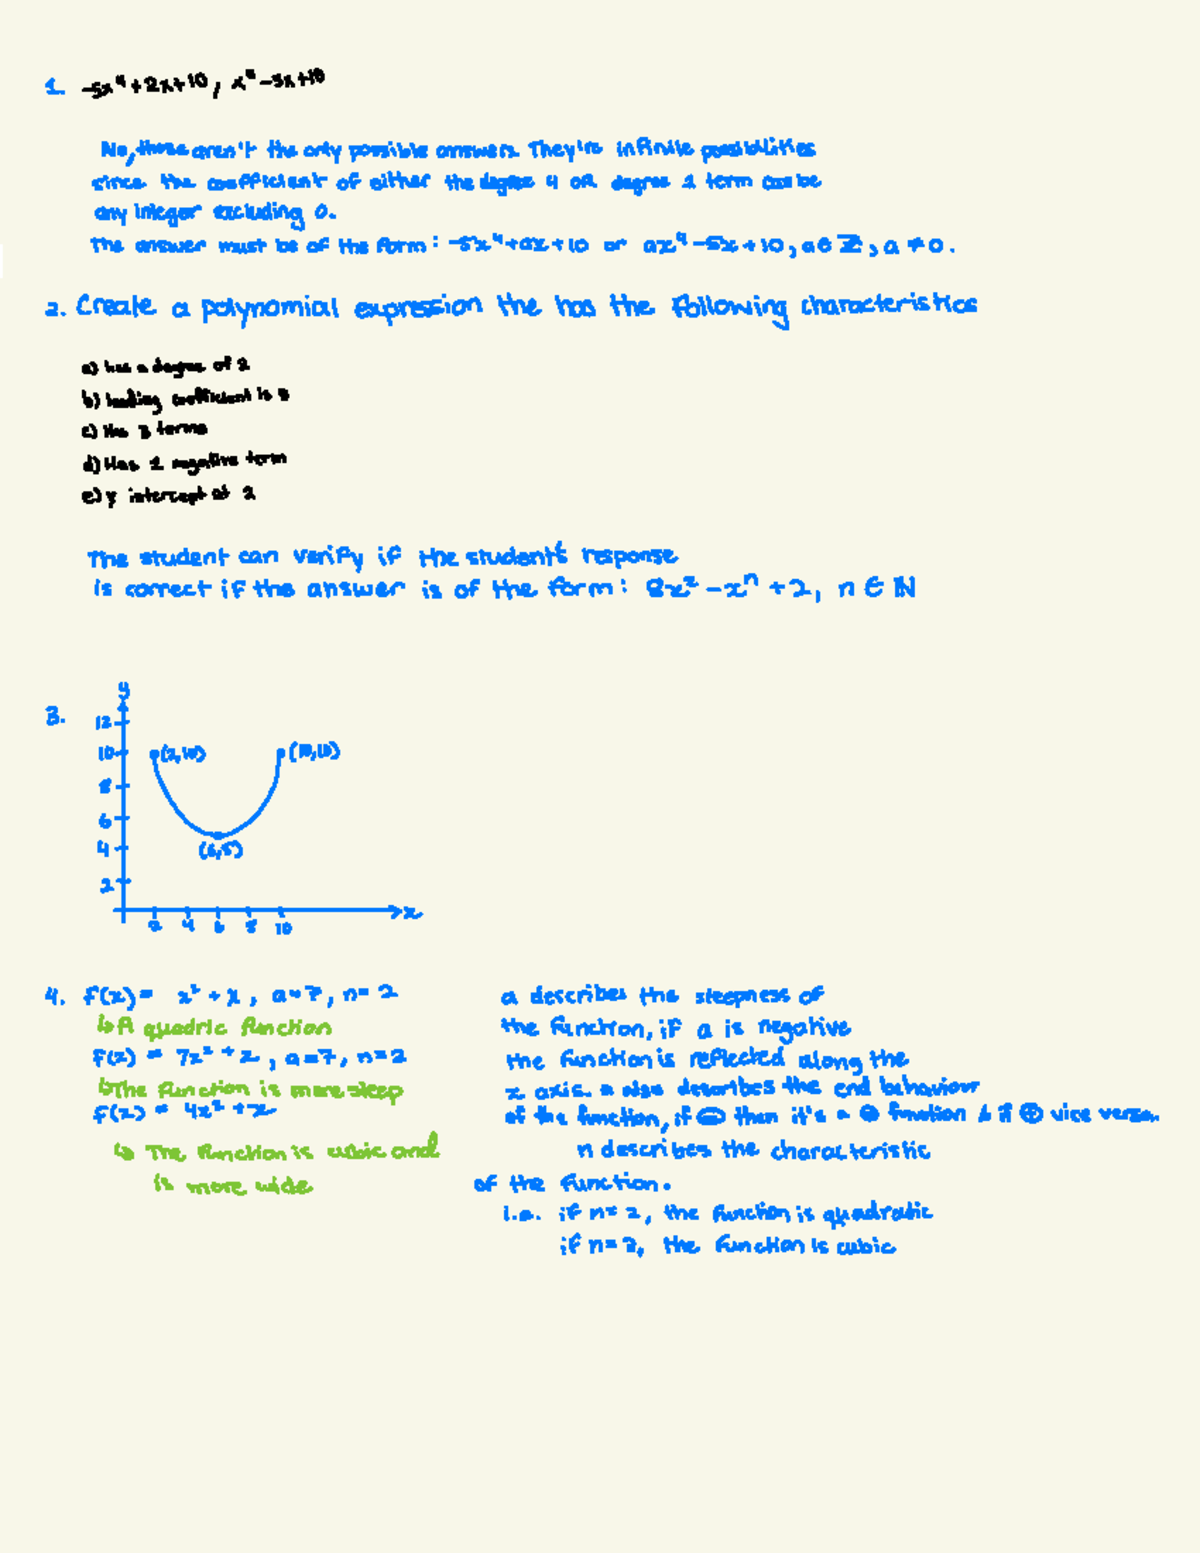 1. -5x⁴+2x+10, x⁴-5x+10
No, those aren't the only possible answers. They're infinite possibilities
since the coefficient of either the degree 4 or degree 1 term can be
any integer excluding 0.
The answer must be of the form: -5x⁴+ax+10 or ax⁴-5x+10, a∈ℤ, a≠0.
2. Create a polynomial expression the has the following characteristics
a) has a degree of 2
b) leading coefficient is 8
c) Has 3 terms
d) Has 1 negative term
e) y intercept at 2
The student can verify if the student's response
is correct if the answer is of the form: 8x²-xⁿ+2, n∈ℕ
3.
y
12
10 (2,10) (10,10)
8
6
4 (6,5)
2
2 4 6 8 10 x
4. f(x)= x²+x, a=7, n=2
↳A quadric function
f(x) = 7x²+x, a=7, n=2
↳The function is more steep
f(x) = 4x²+x
↳ The function is cubic and
is more wide
a describes the steepness of
the function, if a is negative
the function is reflected along the
x axis. a also describes the end behaviour
of the function, if ⊖ then it's a ⊖ function & if ⊕ vice versa.
n describes the characteristic
of the function.
i.e. if n=2, the function is quadratic
if n=3, the function is cubic